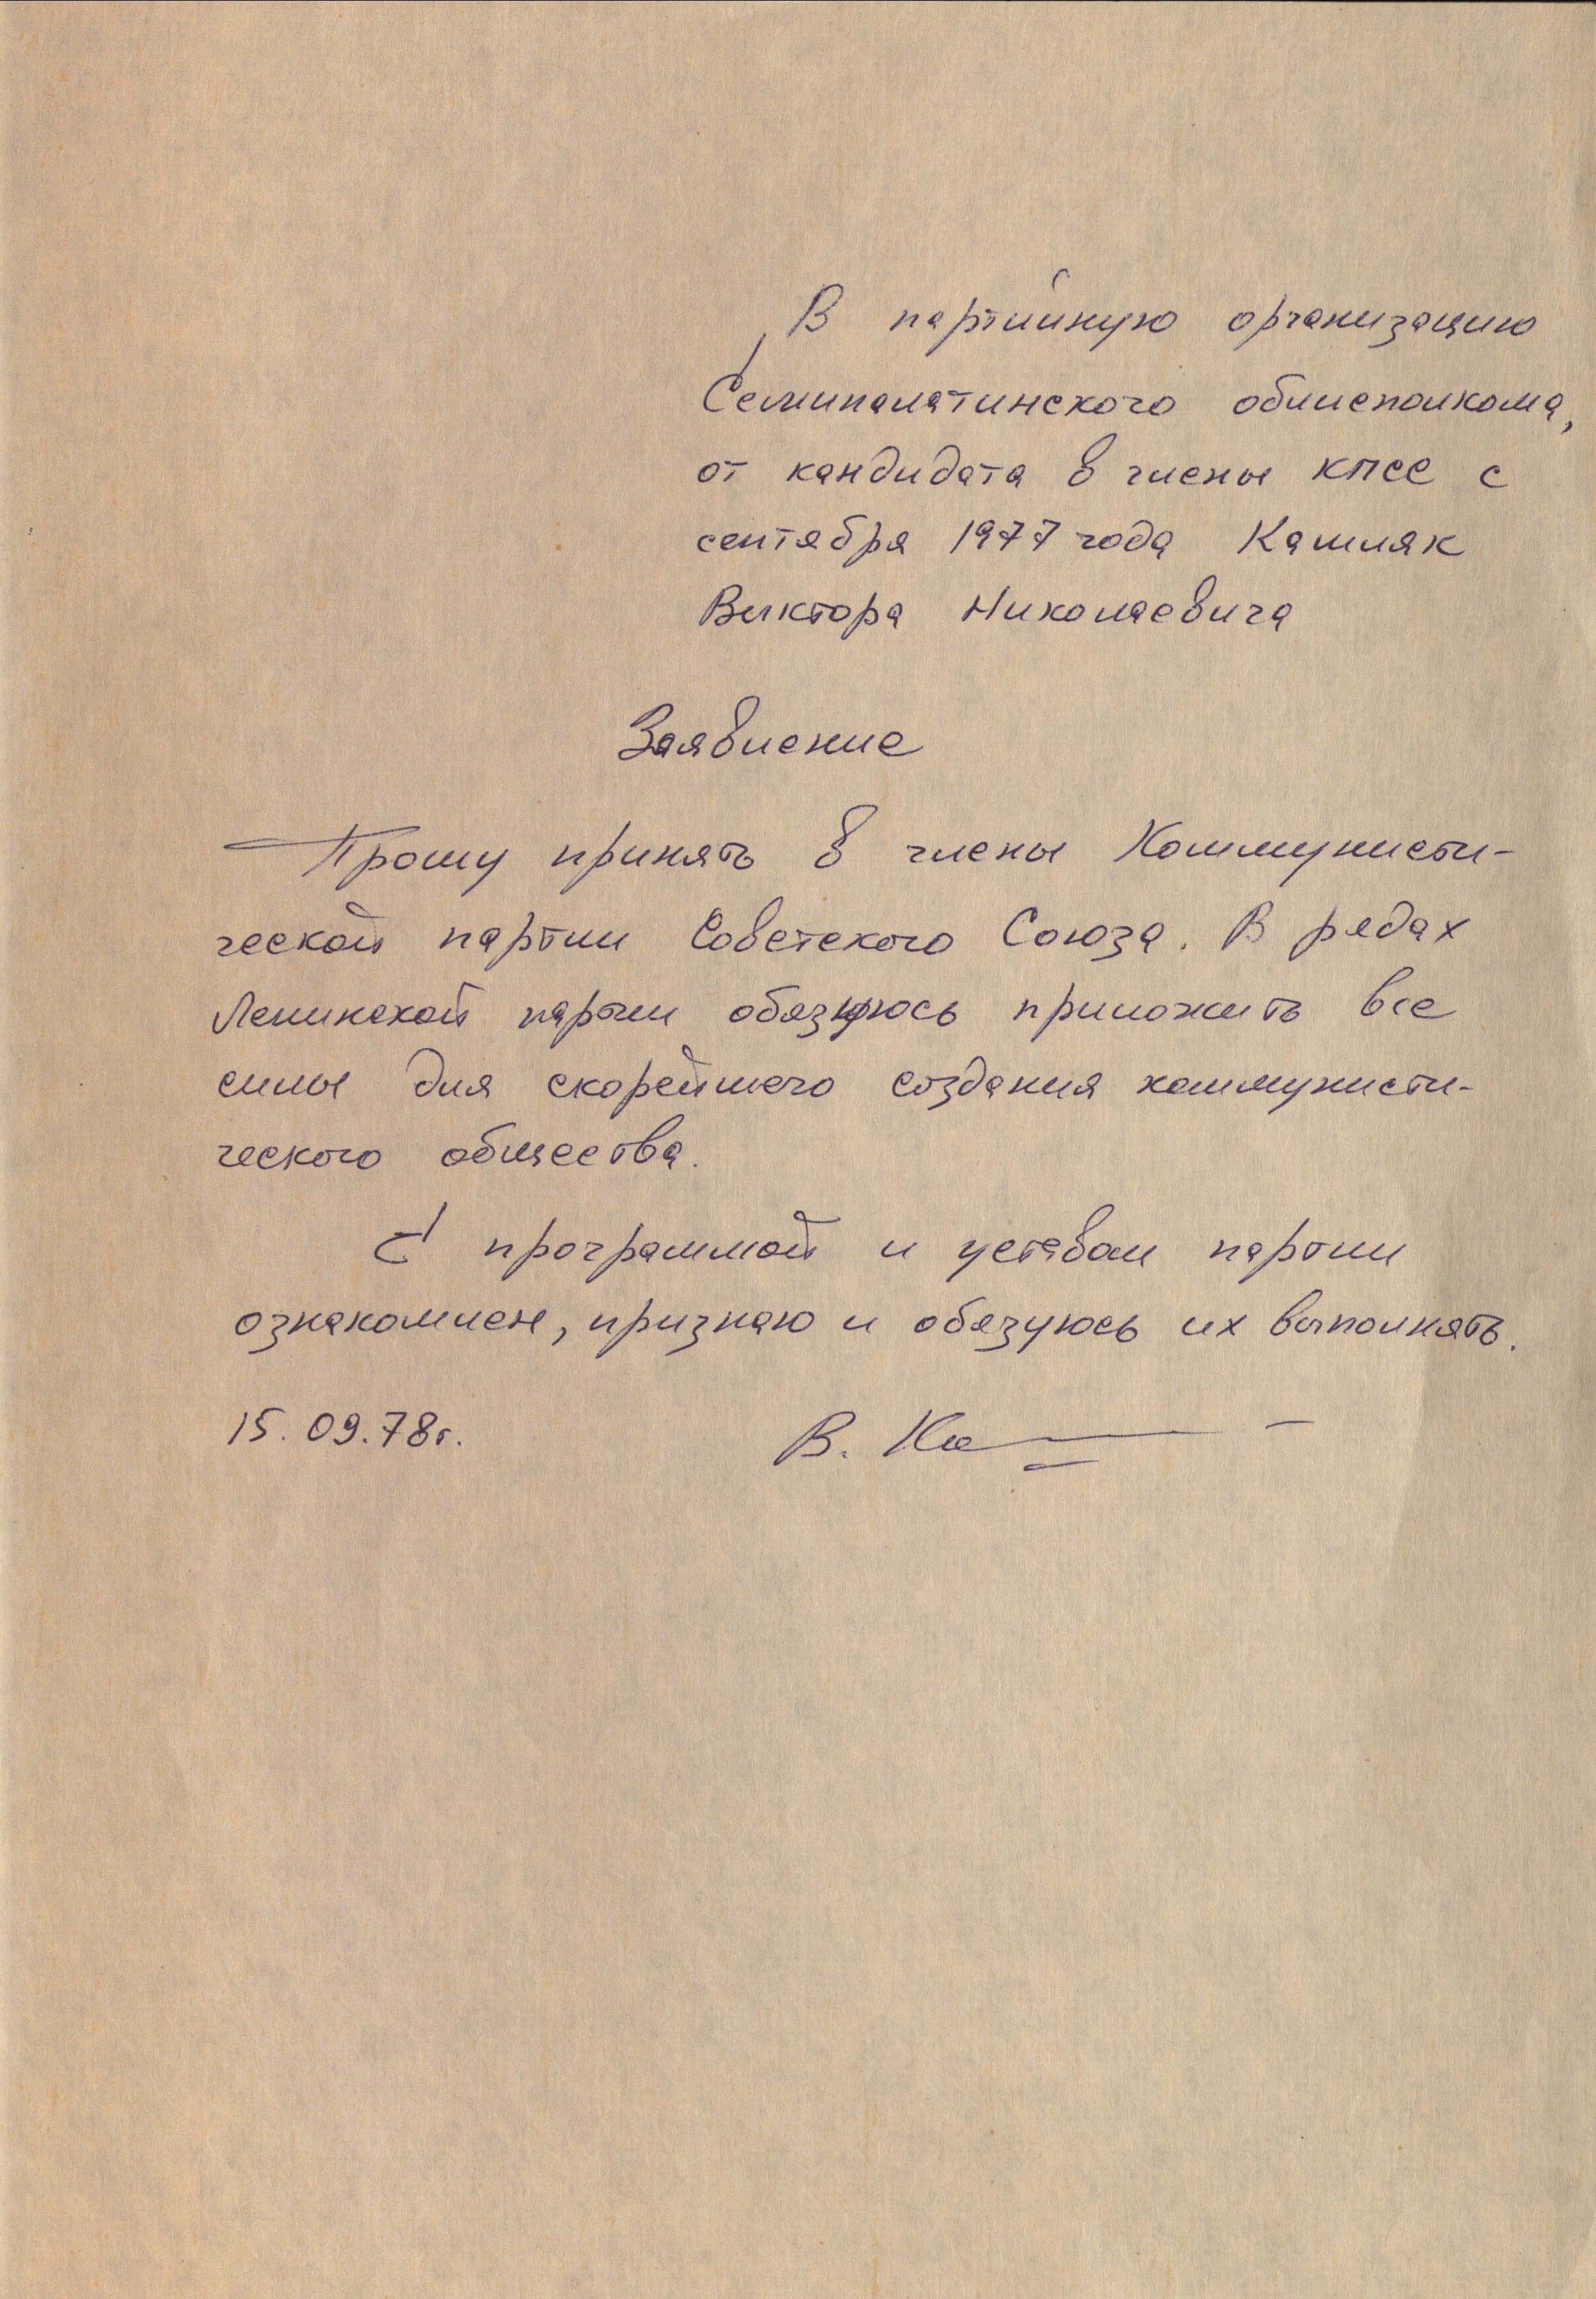 В партийную организацию
Семипалатинского облисполкома,
от кандидата в члены КПСС с
сентября 1977 года Кашляк
Виктора Николаевича
Заявление
Прошу принять в члены Коммунисти-
ческой партии Советского Союза. В рядах
Ленинской партии обязуюсь приложить все
силы для скорейшего создания коммунисти-
ческого общества.
С программой и уставом партии
ознакомлен, признаю и обязуюсь их выполнять.
15.09.78г.
В. Ка